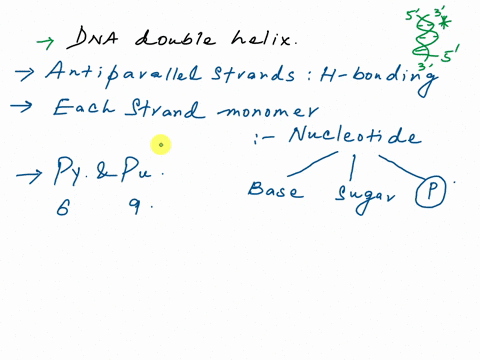 → DNA double helix.
5' 3'
5'
3'
→ Antiparallel Strands : H-bonding
→ Each Strand monomer
:- Nucleotide
Base Sugar P
→ Py. & Pu.
6 9.